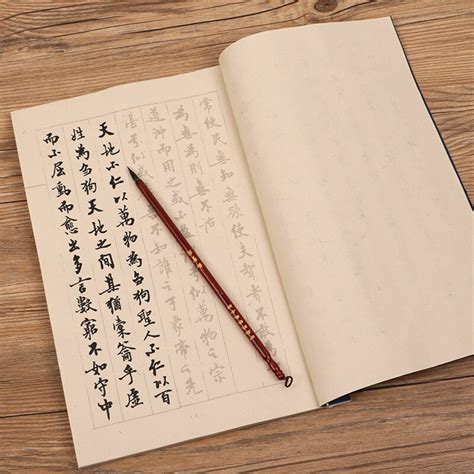 常使民無知無欲使夫智者不敢
為無為則無不治
道沖而用之或不
之宗
湛兮似或
不知誰之子象帝之先
天地不仁以萬物為芻狗聖人不仁以百
姓為芻狗天地之間其猶橐籥乎虛
而不屈動而愈出多言數窮不如守中